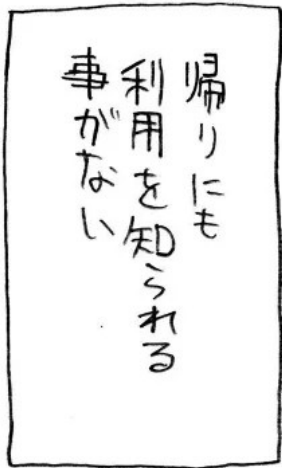 帰りにも
利用を知られる
事がない